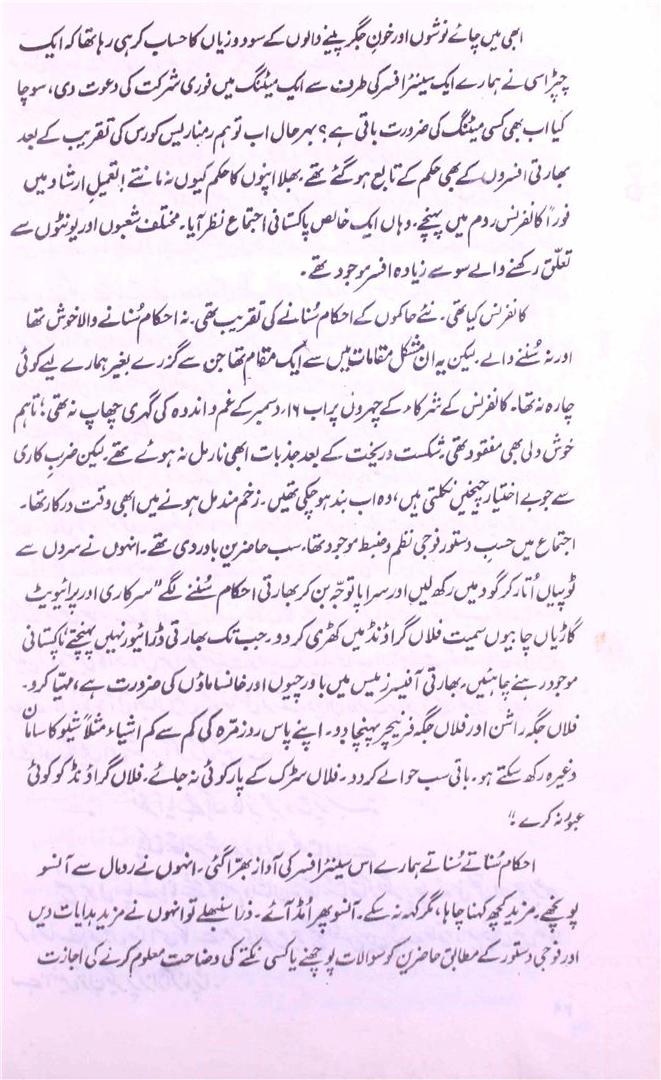 ابھی میں چائے نوشوں اور خونِ جگر پینے والوں کے سود و زیاں کا حساب کر ہی رہا تھا کہ ایک
چپڑاسی نے ہمارے ایک سینئر افسر کی طرف سے ایک میٹنگ میں فوری شرکت کی دعوت دی، سوچا
کیا اب بھی کسی میٹنگ کی ضرورت باقی ہے؟ بہر حال اب تو ہم رمنا ریس کورس کی تقریب کے بعد
بھارتی افسروں کے بھی حکم کے تابع ہو گئے تھے۔ بھلا اپنوں کا حکم کیوں نہ مانتے! تعمیلِ ارشاد میں
فوراً کانفرنس روم میں پہنچے۔ وہاں ایک خالص پاکستانی اجتماع نظر آیا۔ مختلف شعبوں اور یونٹوں سے
تعلق رکھنے والے سو سے زیادہ افسر موجود تھے۔
کانفرنس کیا تھی۔ نئے حاکموں کے احکام سُنانے کی تقریب تھی۔ نہ احکام سُنانے والا خوش تھا
اور نہ سُننے والے۔ لیکن یہ ان مشکل مقامات میں سے ایک مقام تھا جن سے گزرے بغیر ہمارے لیے کوئی
چارہ نہ تھا۔ کانفرنس کے شرکاء کے چہروں پر اب ۱۶؍دسمبر کے غم و اندوہ کی گہری چھاپ نہ تھی؛ تاہم
خوش دلی بھی مفقود تھی۔ شکست و ریخت کے بعد جذبات ابھی نارمل نہ ہوئے تھے۔ لیکن ضربِ کاری
سے جو بے اختیار چیخیں نکلتی ہیں، وہ اب بند ہو چکی تھیں۔ زخم مندمل ہونے میں ابھی وقت درکار تھا۔
اجتماع میں حسب دستور فوجی نظم و ضبط موجود تھا۔ سب حاضرین باوردی تھے۔ انہوں نے سروں سے
ٹوپیاں اُتار کر گود میں رکھ لیں اور سراپا توجّہ بن کر بھارتی احکام سُننے لگے "سرکاری اور پرائیویٹ
گاڑیاں چابیوں سمیت فلاں گراؤنڈ میں کھڑی کر دو۔ جب تک بھارتی ڈرائیور نہیں پہنچتے پاکستانی
موجود رہنے چاہئیں۔ بھارتی آفیسرز میس میں باورچیوں اور خانساماؤں کی ضرورت ہے، مہیّا کرو۔
فلاں جگہ راشن اور فلاں جگہ فرنیچر پہنچا دو۔ اپنے پاس روز مرّہ کی کم سے کم اشیاء مثلاً شیو کا سامان
وغیرہ رکھ سکتے ہو۔ باقی سب حوالے کر دو۔ فلاں سڑک کے پار کوئی نہ جائے۔ فلاں گراؤنڈ کو کوئی
عبور نہ کرے۔"
احکام سُناتے سُناتے ہمارے اس سینئر افسر کی آواز بھرّا گئی۔ انہوں نے رومال سے آنسو
پونچھے۔ مزید کچھ کہنا چاہا، مگر کہہ نہ سکے۔ آنسو پھر اُمڈ آئے۔ ذرا سنبھلے تو انہوں نے مزید ہدایات دیں
اور فوجی دستور کے مطابق حاضرین کو سوالات پوچھنے یا کسی نکتے کی وضاحت معلوم کرنے کی اجازت